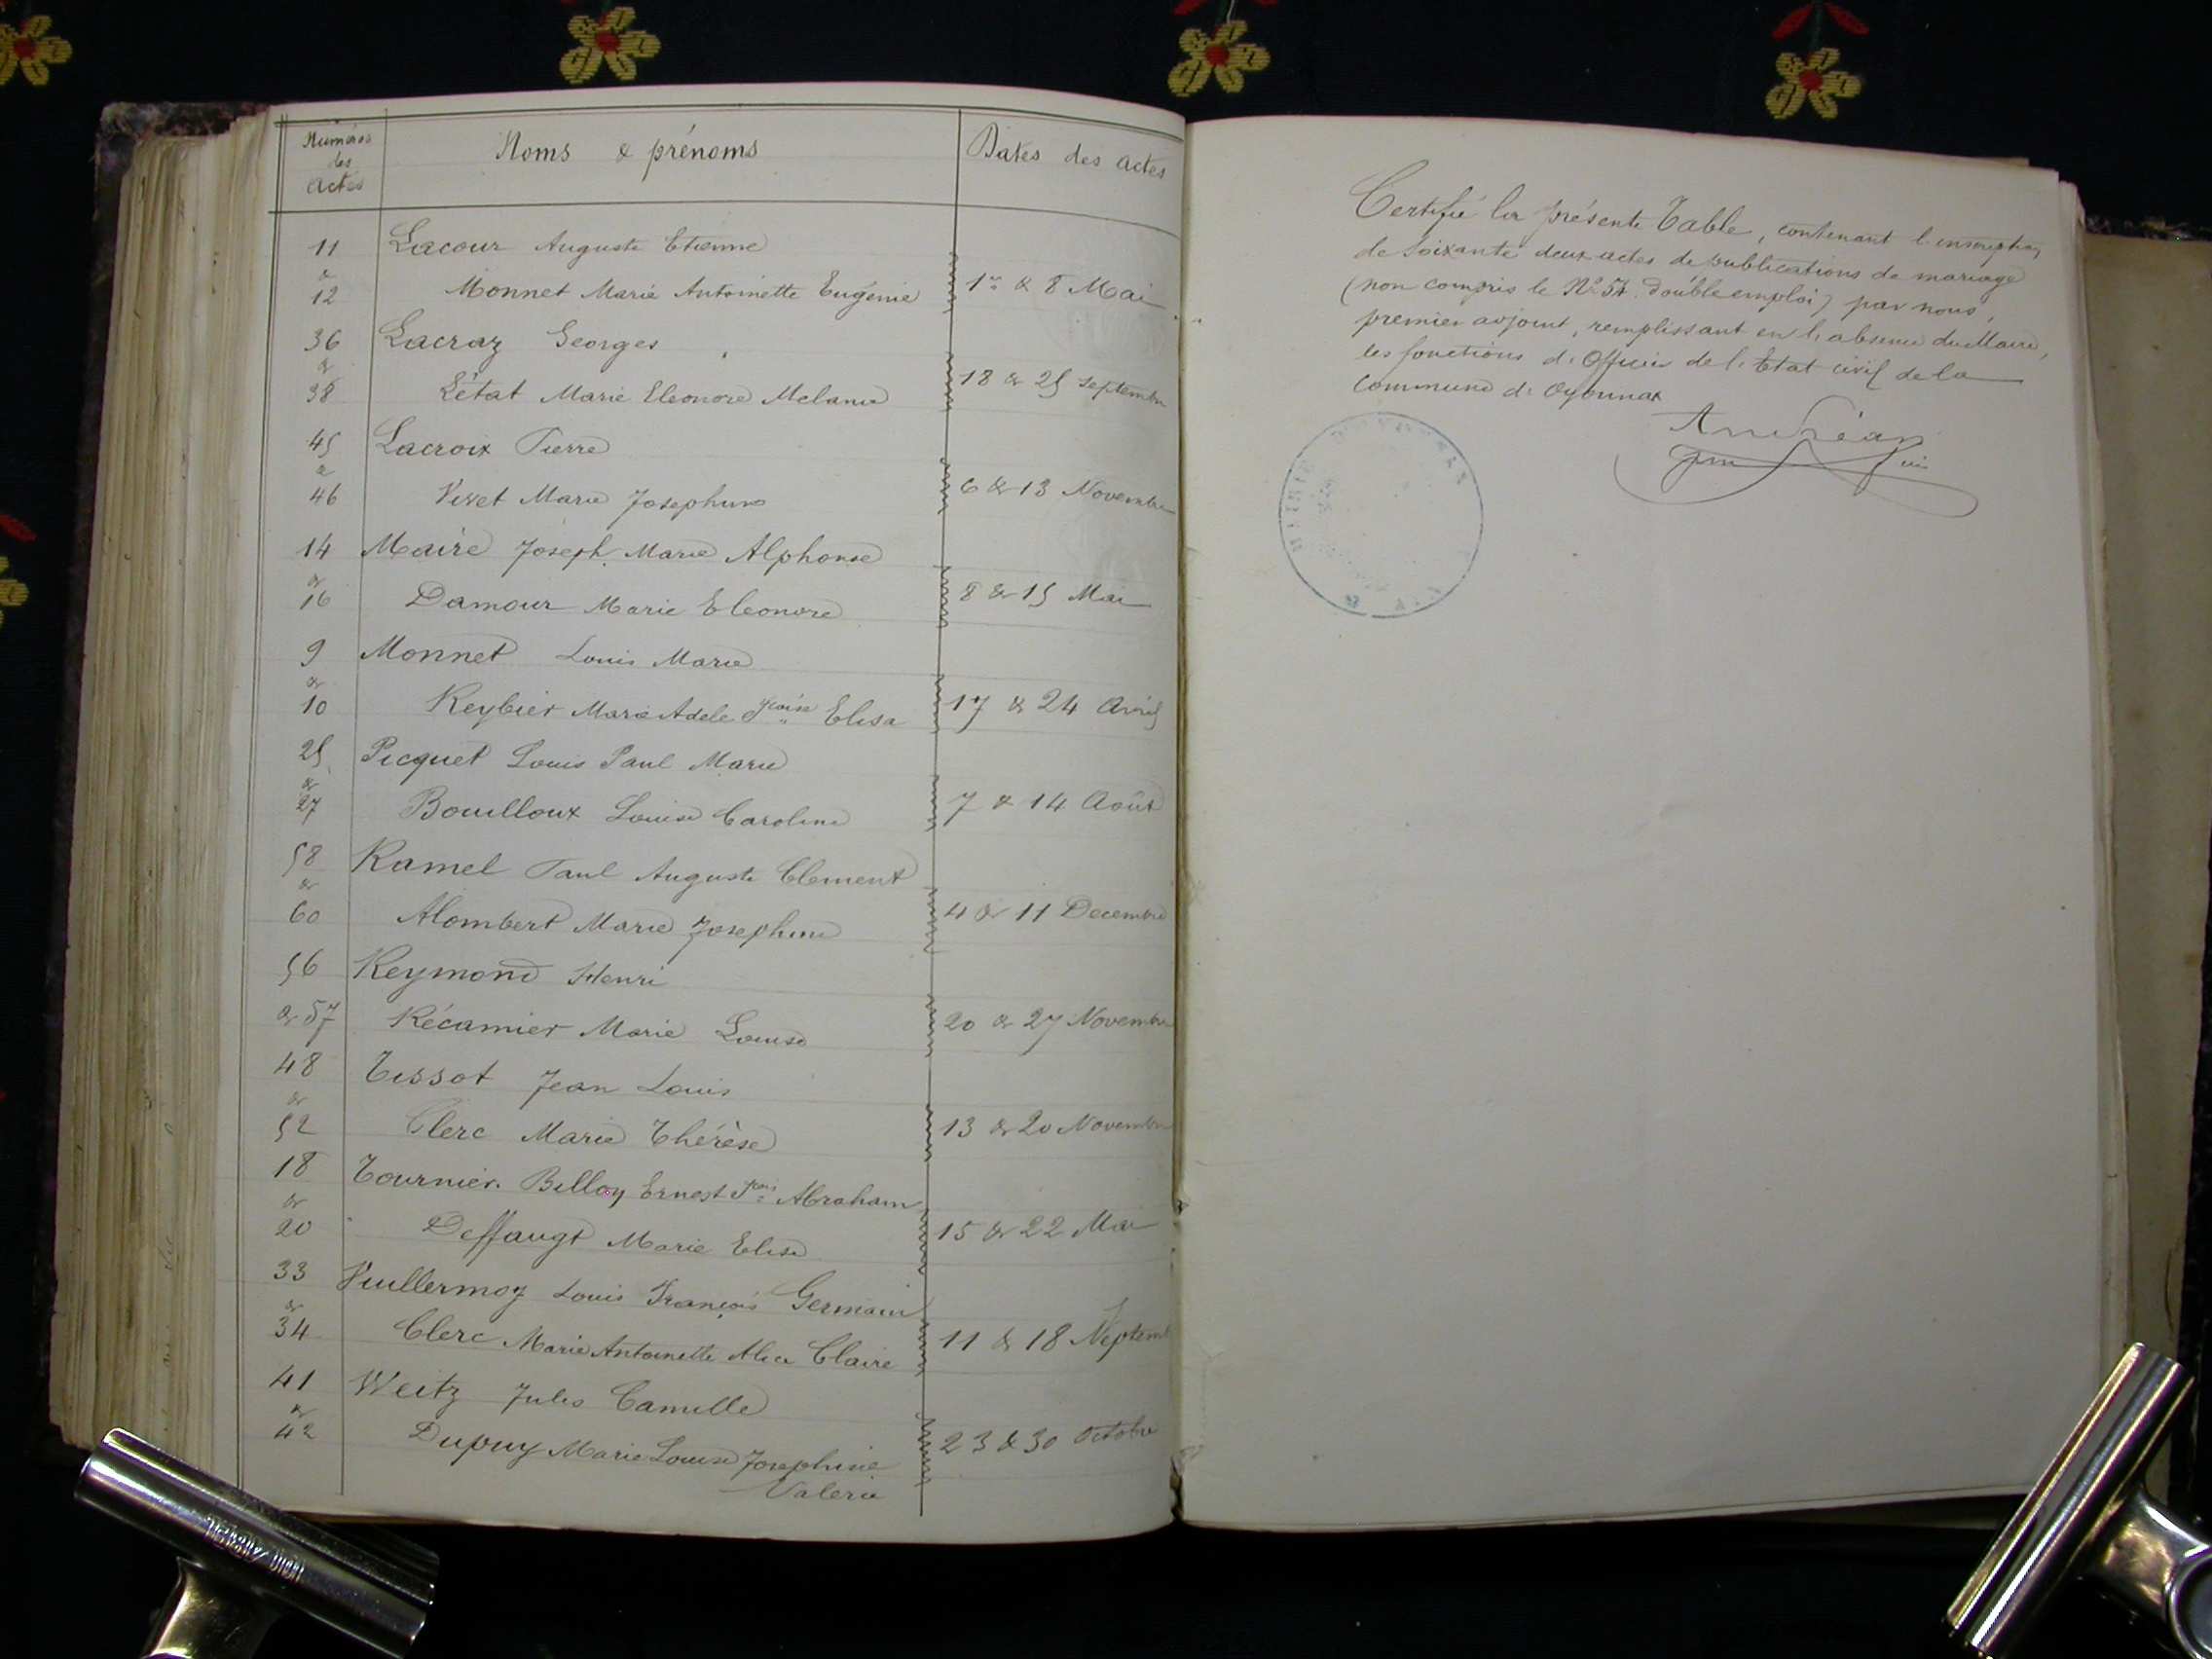 Numéros
des
Actes
Noms & prénoms
Dates des actes
11 Lacour Auguste Etienne
&
12 Monnet Marie Antoinette Eugénie 1er & 8 Mai
36 Lacraz Georges
&
38 Létat Marie Eleonore Melanie 18 & 25 Septembre
45 Lacroix Pierre
&
46 Visset Marie Josephine 6 & 13 Novembre
14 Maire Joseph Marie Alphonse
&
16 Damour Marie Eleonore 8 & 15 Mai
9 Monnet Louis Marie
&
10 Reybier Marie Adele Fçoise Elisa 17 & 24 Avril
25 Picquet Louis Paul Marie
&
27 Bouilloux Louise Caroline 7 & 14 Août
58 Ramel Paul Auguste Clement
&
60 Alombert Marie Josephine 4 & 11 Decembre
56 Reymond Henri
& 57 Récamier Marie Louise 20 & 27 Novembre
48 Tissot Jean Louis
&
52 Clerc Marie Thérèse 13 & 20 Novembre
18 Tournier-Billon Ernest Fçois Abraham
&
20 Deffaugt Marie Elise 15 & 22 Mai
33 Vuillermoz Louis François Germain
&
34 Clerc Marie Antoinette Alice Claire 11 & 18 Septemb
41 Weitz Jules Camille
&
42 Dupuy Marie Louise Josephine 23 & 30 Octobre
Valerie
Certifié la présente Table, contenant l'inscription
de Soixante deux actes de publications de mariage
(non compris le No 57. double emploi) par nous,
premier adjoint, remplissant en l'absence du Maire,
les fonctions d'Officier de l'Etat civil de la
Commune d'Oyonnax